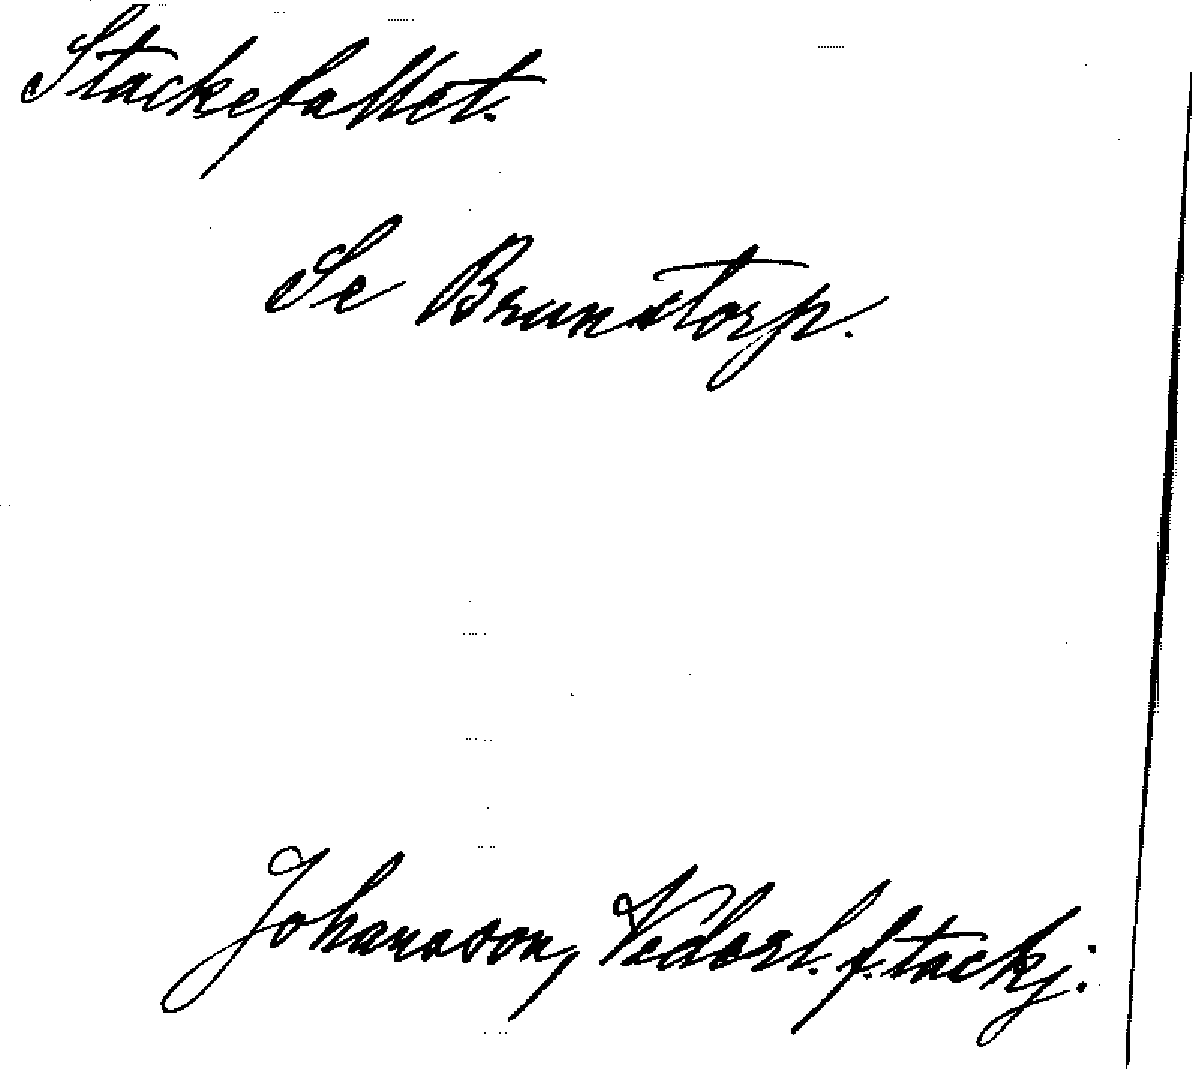 Stackefallet.
Se Brunstorp.
Johansson, Vedersl. f. tackj.